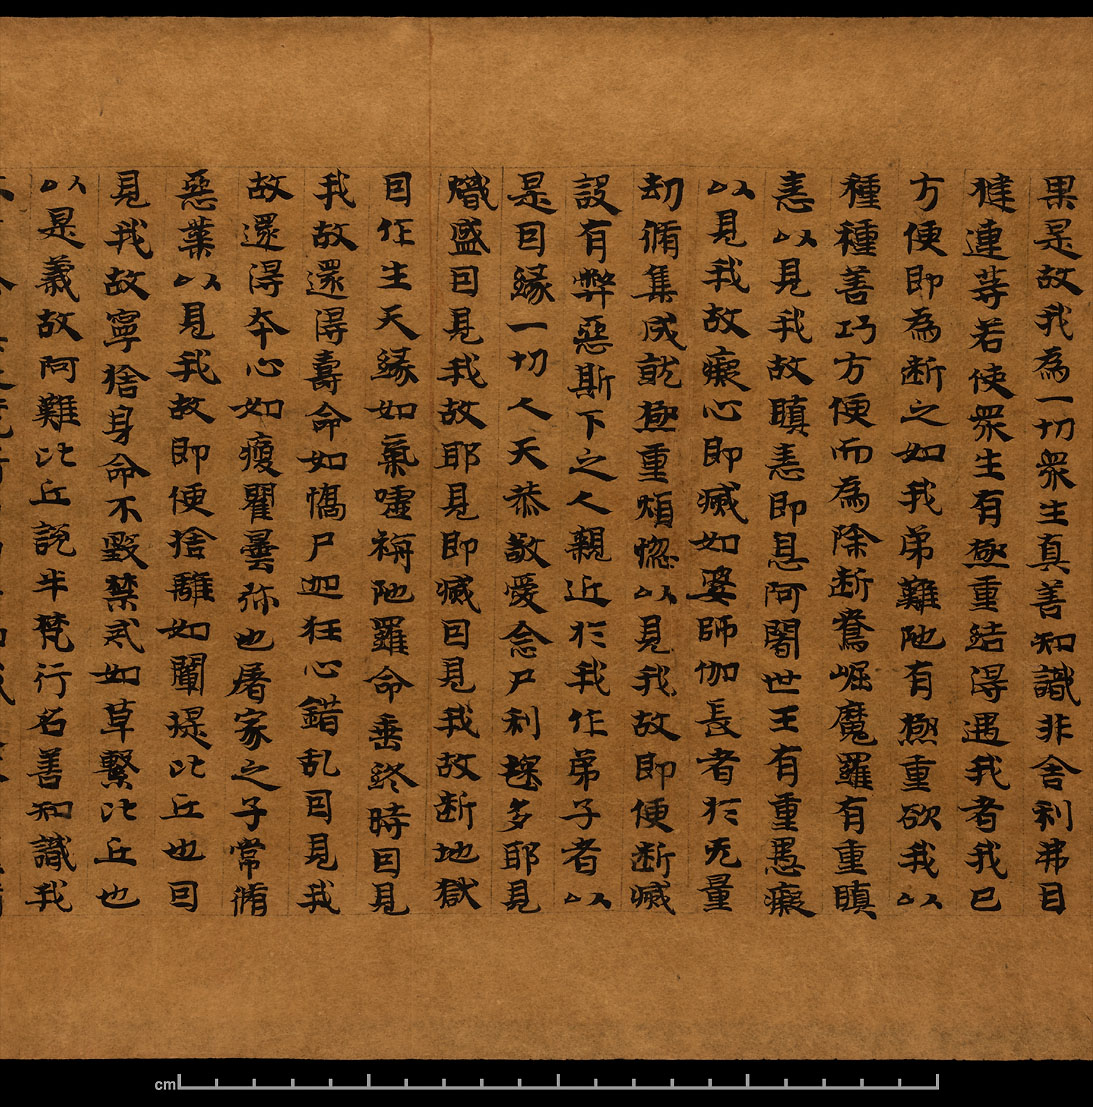 果是故我為一切衆生真善知識非舍利弗目
揵連等若使衆生有極重結得遇我者我已
方便即為断之如我弟難陁有極重欲我以
種種善巧方便而為除断鴦崛魔羅有重瞋
恚以見我故瞋恚即息阿闍世王有重愚癡
以見我故癡心即滅如婆師伽長者於无量
劫脩集成就極重煩惚以見我故即便断滅
設有弊惡斯下之人親近於我作弟子者以
是因緣一切人天恭敬愛念尸利毱多耶見
熾盛因見我故耶見即滅因見我故断地獄
因作生天緣如氣嘘栴陁羅命垂終時因見
我故還得壽命如憍尸迦狂心錯乱因見我
故還得本心如瘦瞿曇弥也屠家之子常脩
惡業以見我故即便捨離如闡提比丘也因
見我故寧捨身命不毀禁戒如草繫比丘也
以是義故阿難比丘說半梵行名善知識我
cm